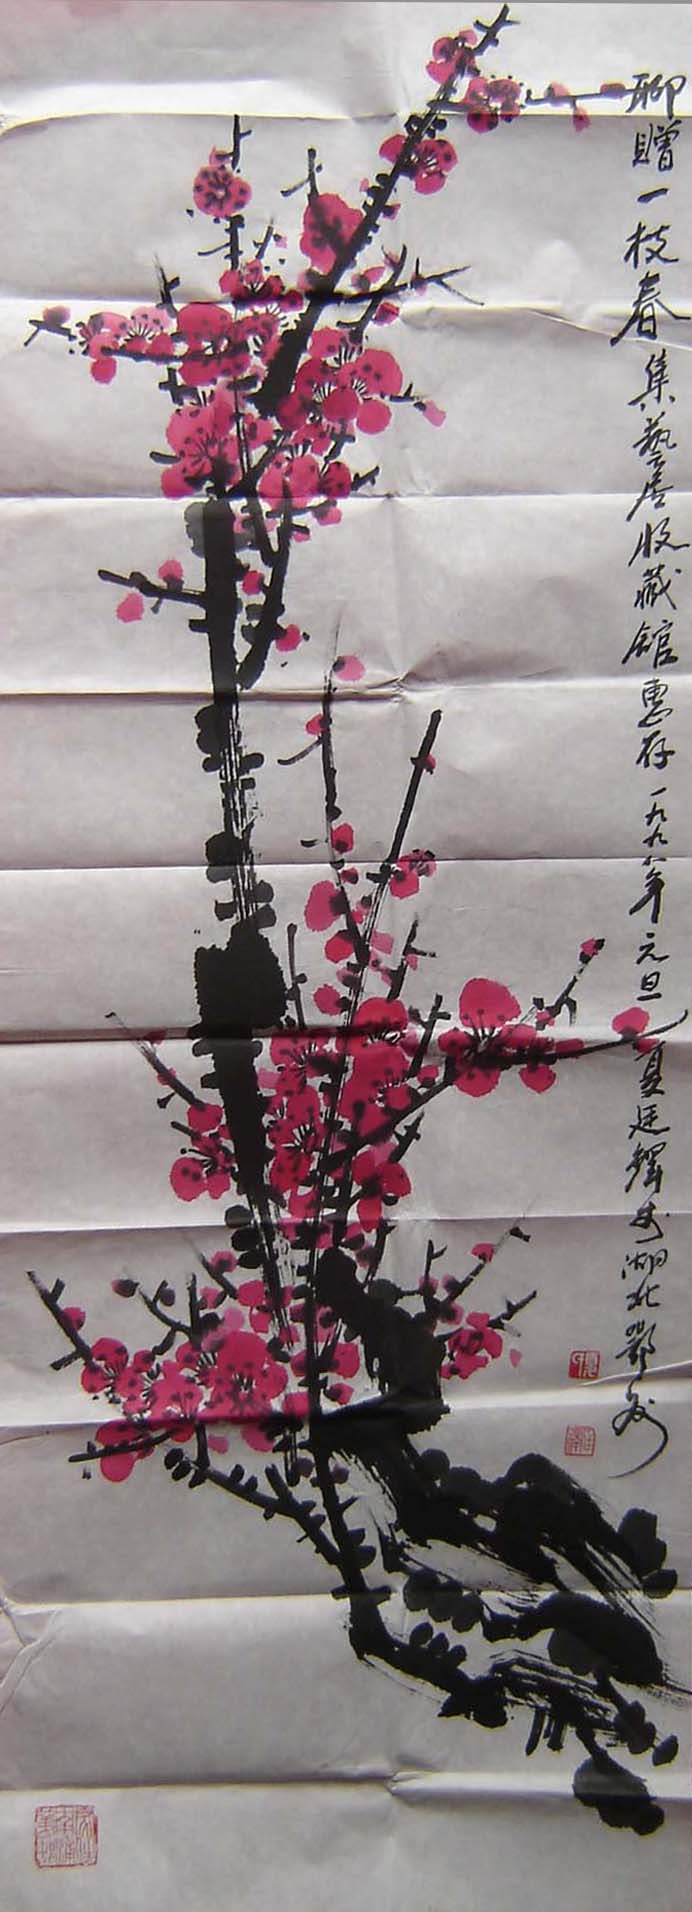 聊贈一枝春 集藝居收藏館惠存 一九九八年元旦 夏廷鐸于湖北鄂州